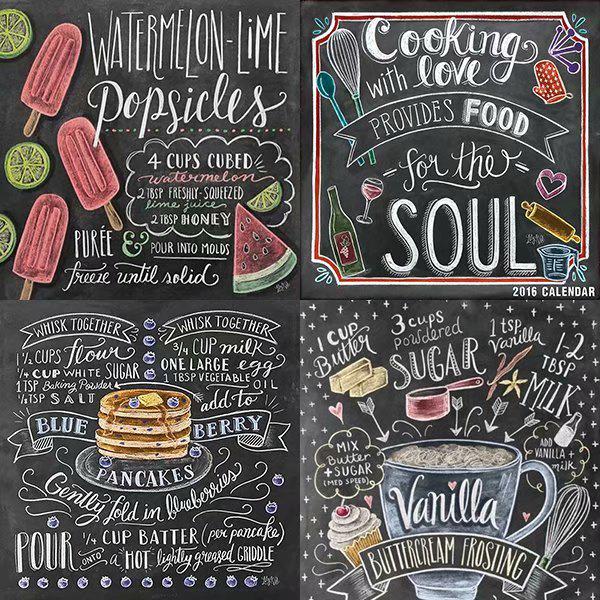 WATERMELON-LIME
Popsicles
4 CUPS CUBED
watermelon
2 TBSP FRESHLY-SQUEEZED
lime juice
2 TBSP HONEY
PURÉE & POUR INTO MOLDS
freeze until solid
Cooking
with love
PROVIDES FOOD
for the
SOUL
2016 CALENDAR
WHISK TOGETHER
1 1/4 CUPS flour
1/4 CUP WHITE SUGAR
1 TSP Baking Powder
1/4 TSP SALT
WHISK TOGETHER
3/4 CUP milk
ONE LARGE egg
1 TBSP VEGETABLE OIL
add to
BLUE BERRY
PANCAKES
Gently fold in blueberries
POUR 1/4 CUP BATTER (per pancake)
ONTO a HOT lightly greased GRIDDLE
1 CUP
Butter
3 cups
powdered
SUGAR
1 tsp
Vanilla
1-2
TBSP
MILK
MIX
Butter
+ SUGAR
(MED SPEED)
ADD
VANILLA +
milk
Vanilla
BUTTERCREAM FROSTING